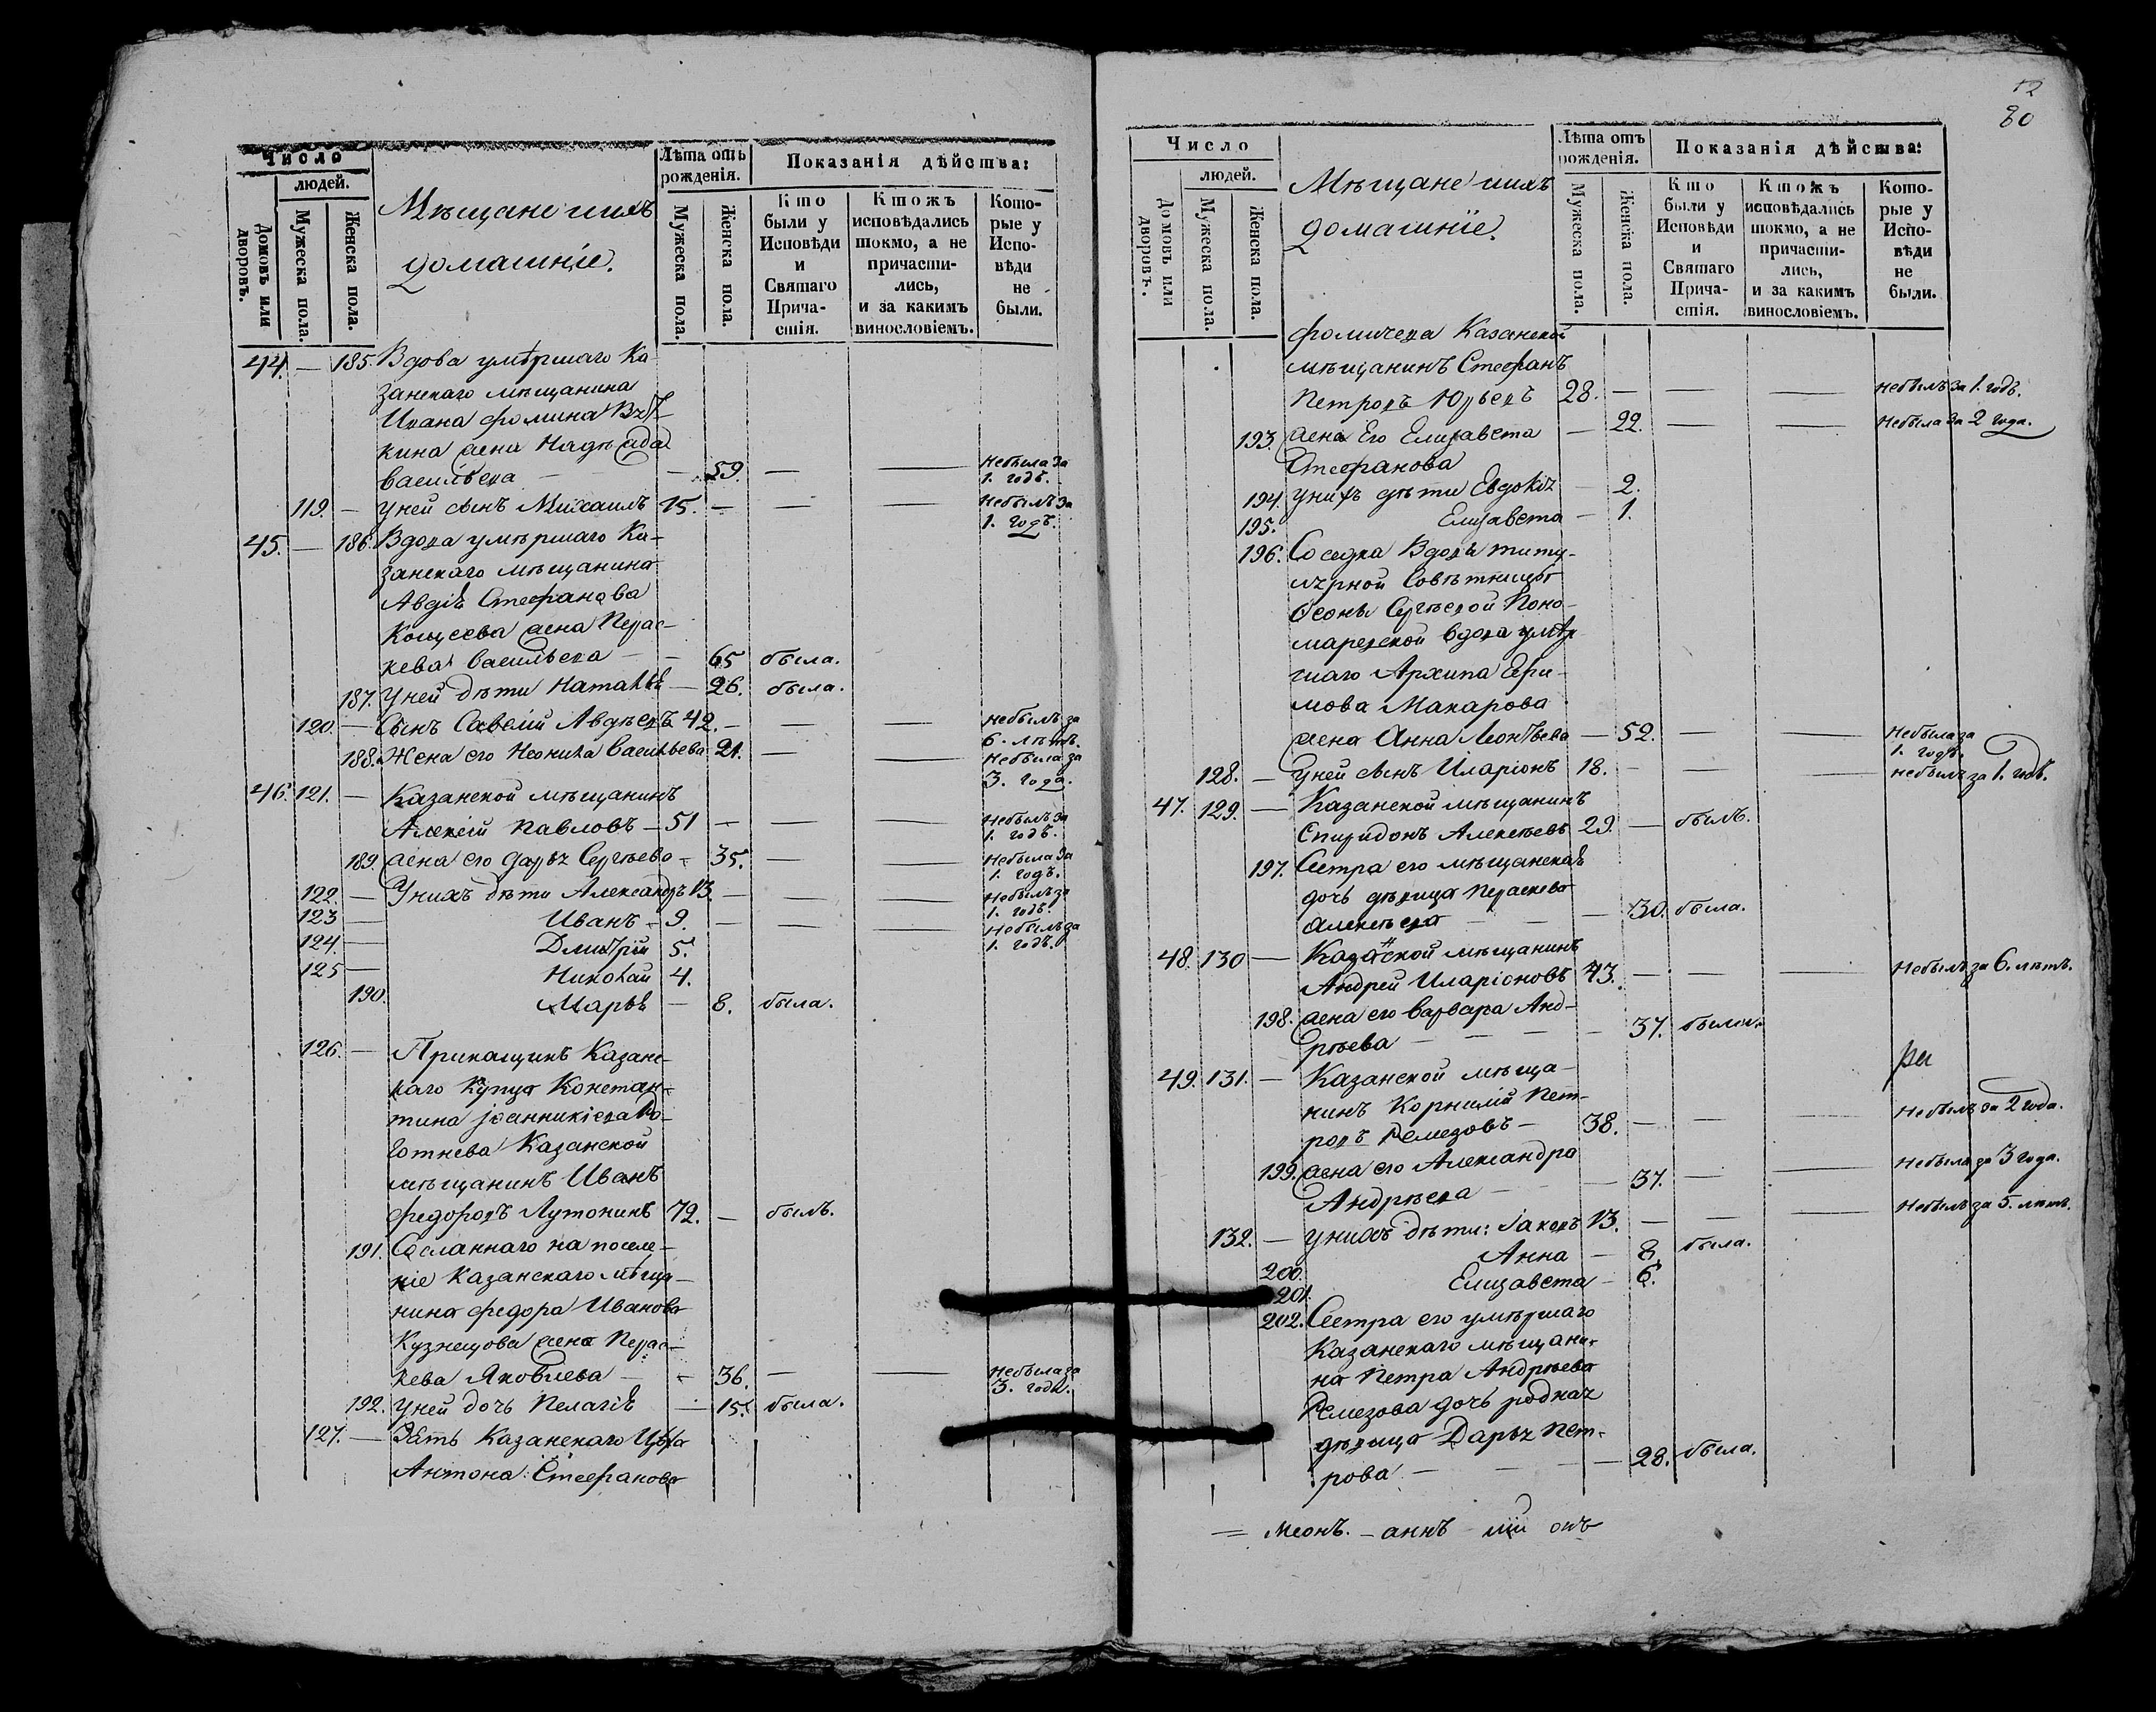 Число
людей.
Домовъ или дворовъ.
Мужеска пола.
Женска пола.
Мѣщане ихъ
домашніе.
Лѣта отъ рожденія.
Мужеска пола.
Женска пола.
Показанія дѣйства:
Кто были у Исповѣди и Святаго Причастія.
Ктожъ исповѣдались токмо, а не причастились, и за какимъ винословіемъ.
Которые у Исповѣди не были.
44. — 185. Вдова умѣршаго Ка-
занскаго мѣщанина
Ивана Фомина
кина жена Надѣжда
Васильева — 59. — — Небыла за 1. годъ.
119. — Уней сынъ Михаилъ 15. — — Небылъ за 1. годъ.
45. — 186. Вдова умѣршаго Ка-
занскаго мѣщанина
Авдія Стефанова
Кощеева жена Парас-
кева Васильева — 65 была.
187. Уней дѣти Наталья — 26. была.
120. — Сынъ Савелій Авдѣевъ 42. — — — Небылъ за 6. лѣтъ.
188. Жена его Неонила Васильева 21. — Небыла за 3. года.
46. 121. — Казанской мѣщанинъ
Алексій Павловъ — 51 — — — Небылъ за 1. годъ.
189. жена его Дарья Сергѣева — 35. — — Небыла за 1. годъ.
122. — Унихъ дѣти Александръ 13. — — — Небылъ за 1. годъ.
123 — Иванъ — 9. — — — Небылъ за 1. годъ.
124. — Дмитрій 5.
125 — Николай 4.
190. Марья — 8. была.
126. — Прикащикъ Казанс-
каго Купца Констан-
тина Іоанникіева Ко-
готнева Казанской
мѣщанинъ Иванъ
Федоровъ Лутонинъ 72. — былъ.
191. Сосланнаго на поселе-
ніе Казанскаго мѣща-
нина Федора Иванова
Кузнецова жена Парас-
кева Яковлева — 36. — — Небыла за 3. года.
192. Уней дочь Пелагія — 15. была.
127. — Зять Казанскаго
Антона Стефанова
52
80
Число
людей.
Домовъ или дворовъ.
Мужеска пола.
Женска пола.
Мѣщане ихъ
домашніе.
Лѣта отъ рожденія.
Мужеска пола.
Женска пола.
Показанія дѣйства:
Кто были у Исповѣди и Святаго Причастія.
Ктожъ исповѣдались токмо, а не причастились, и за какимъ винословіемъ.
Которые у Исповѣди не были.
Фомичева Казанской
мѣщанинъ Стефанъ
Петровъ Юрьевъ 28. — — — Небылъ за 1. годъ.
193. жена Его Елизавета — 22. — — Небыла за 2 года.
Стефанова
194. Унихъ дѣти Евдокія — 2.
195. Елизавета — 1.
196. Соседка Вдовы титу-
лярной Совѣтницы
Сергѣевой Поно-
маревской вдова умѣр-
шаго Архипа Ефи-
мова Макарова
жена Анна Леонтьева — 52. — — Небыла за 1. годъ.
128. — Уней сынъ Иларіонъ 18. — — — Небылъ за 1. годъ.
47. 129. — Казанской мѣщанинъ
Спиридонъ Алексѣевъ 29. — былъ.
197. Сестра его мѣщанская
дочь дѣвица Параскева
Алексѣева — — — 30. была.
48. 130 — Казанской мѣщанинъ
Андрей Иларіоновъ 43. — — — Небылъ за 6. лѣтъ.
198. жена его Варвара Анд-
рѣева — — — — 37. была.
49. 131. — Казанской мѣща-
нинъ Корнилій Пет-
ровъ Ремезовъ — 38. — — — Небылъ за 2 года.
199. жена его Александра
Андрѣева — — 37. — — Небыла за 3 года.
132. — Унихъ дѣти: Іаковъ 13. — — — Небылъ за 5. лѣтъ.
200. Анна — 8. была.
201. Елизавета — 6.
202. Сестра его умѣршаго
Казанскаго мѣщани-
на Петра Андрѣева
Ремезова дочь родная
дѣвица Дарья Пет-
рова — — — — 28. была.